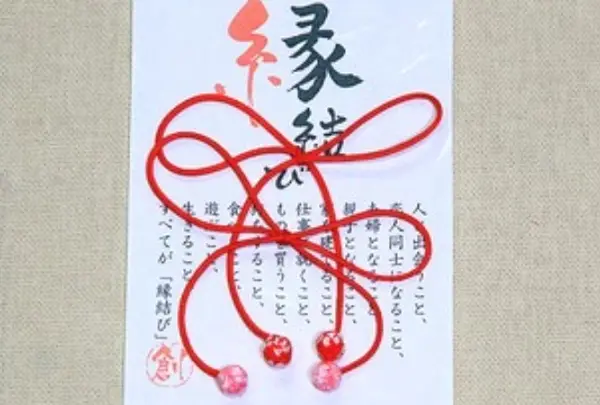 縁結び
人と出会うこと、
恋人同士になること、
夫婦となること、
親子となること、
家を建てること、
仕事に就くこと、
ものを買うこと、
をすること、
食べること、
遊ぶこと、
生きること
すべてが「縁結び」
創